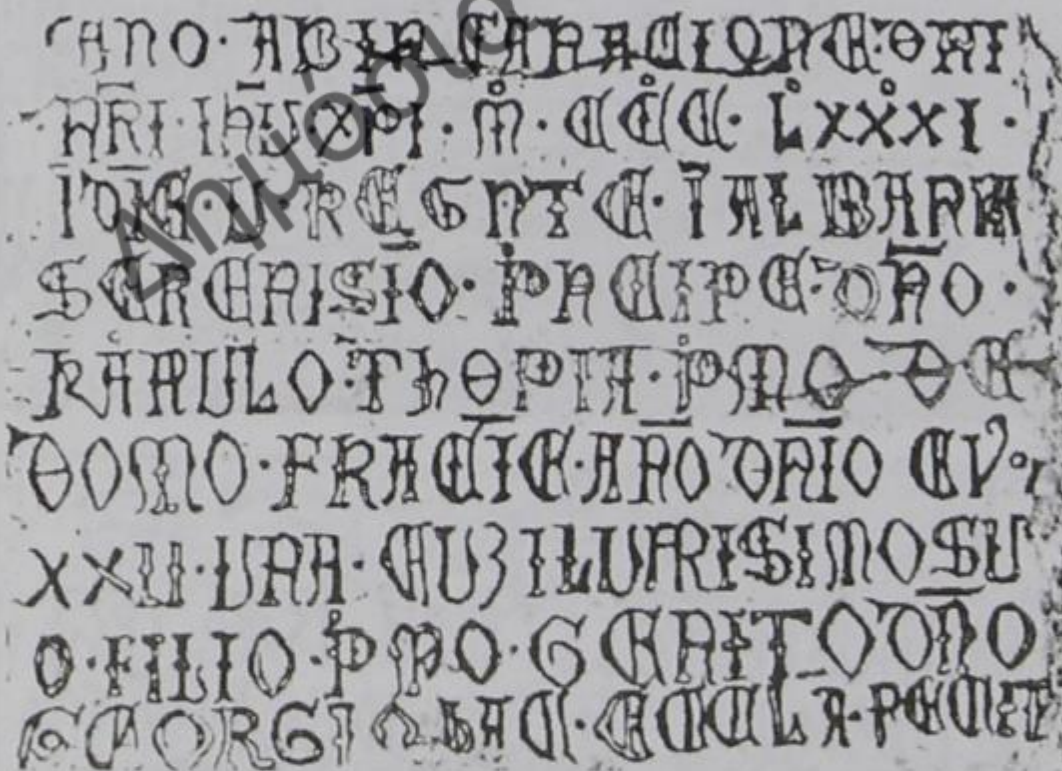 ANO · AB INCARNACIONE · DNI
NRI · IHU · XPI · M · CCC · LXXXI ·
IDIE · U · REGNTE · I ALBANIA
SERENISIO · PNCIPE · DNO ·
KARULO · THOPIA · PMO · DE
DOMO · FRACIE · ANO DNIO EV ·
XXII · UNA · CUZ ILURISIMO SU
O · FILIO · PMO · GENITO DNO
GEORGIO HAC · ECCLA · FECIT
Δημόσιο